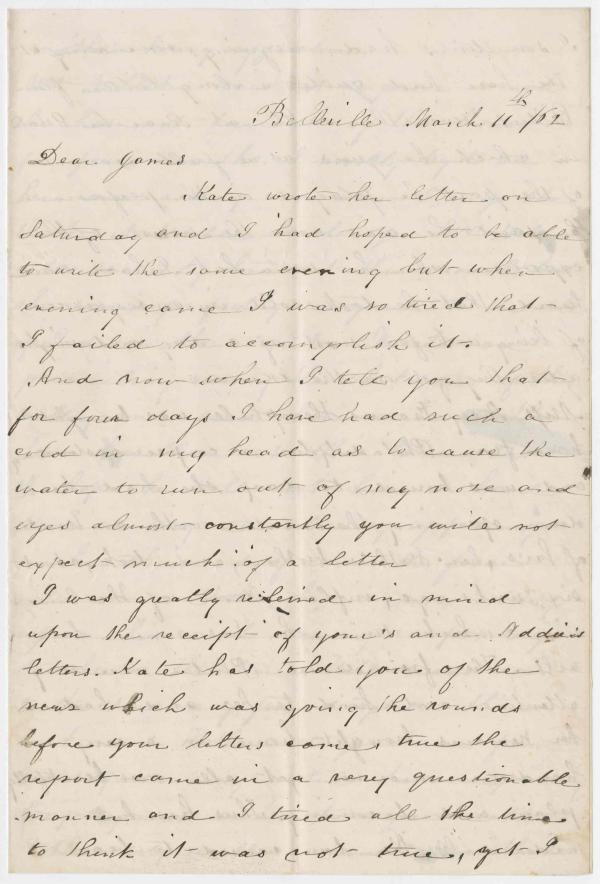 Belleville March 11th /62
Dear James
Kate wrote her letter on
Saturday and I had hoped to be able
to write the same evening but when
evening came I was so tired that
I failed to accomplish it.
And now when I tell you that
for four days I have had such a
cold in my head as to cause the
water to run out of my nose and
eyes almost constently you will not
expect much of a letter
I was greatly releived in mind
upon the receipt of your's and Addie's
letters. Kate has told you of the
news which was going the rounds
before your letters came, true the
report came in a very questionable
manner and I tried all the time
to think it was not true, yet I